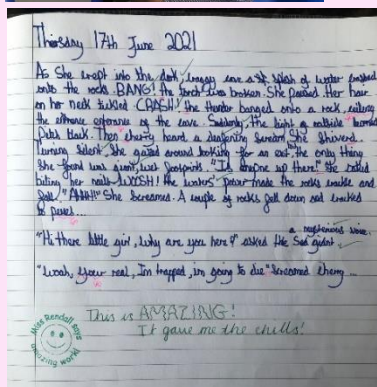 Thursday 17th June 2021
As She crept into the dark, craggy cave a splash of water crashed
onto the rocks. BANG! the torch was broken. She paused. Her hair
on her neck tickled CRASH! the thunder banged onto a rock, sealing
the entrance of the cave. Suddenly, the light of outside turned
Pitch black. Then cherry heard a deafening scream. She Shiverd,
turning Silent, She gazed around looking for an exit, the only thing
She found was giant, wet footprints. "Is anyone up there" she asked
biting her nails WOOSH! the waters power made the rocks crackle and
fall, "AHHH" She screamed. A couple of rocks fell down and cracked
to pieces...
a mysterious voice.
"Hi there little girl, Why are you here?" asked the Sea giant
"Woah, your real, Im trapped, im going to die" Screamed cherry...
This is AMAZING!
It gave me the chills!
Miss Rendall says
amazing work!